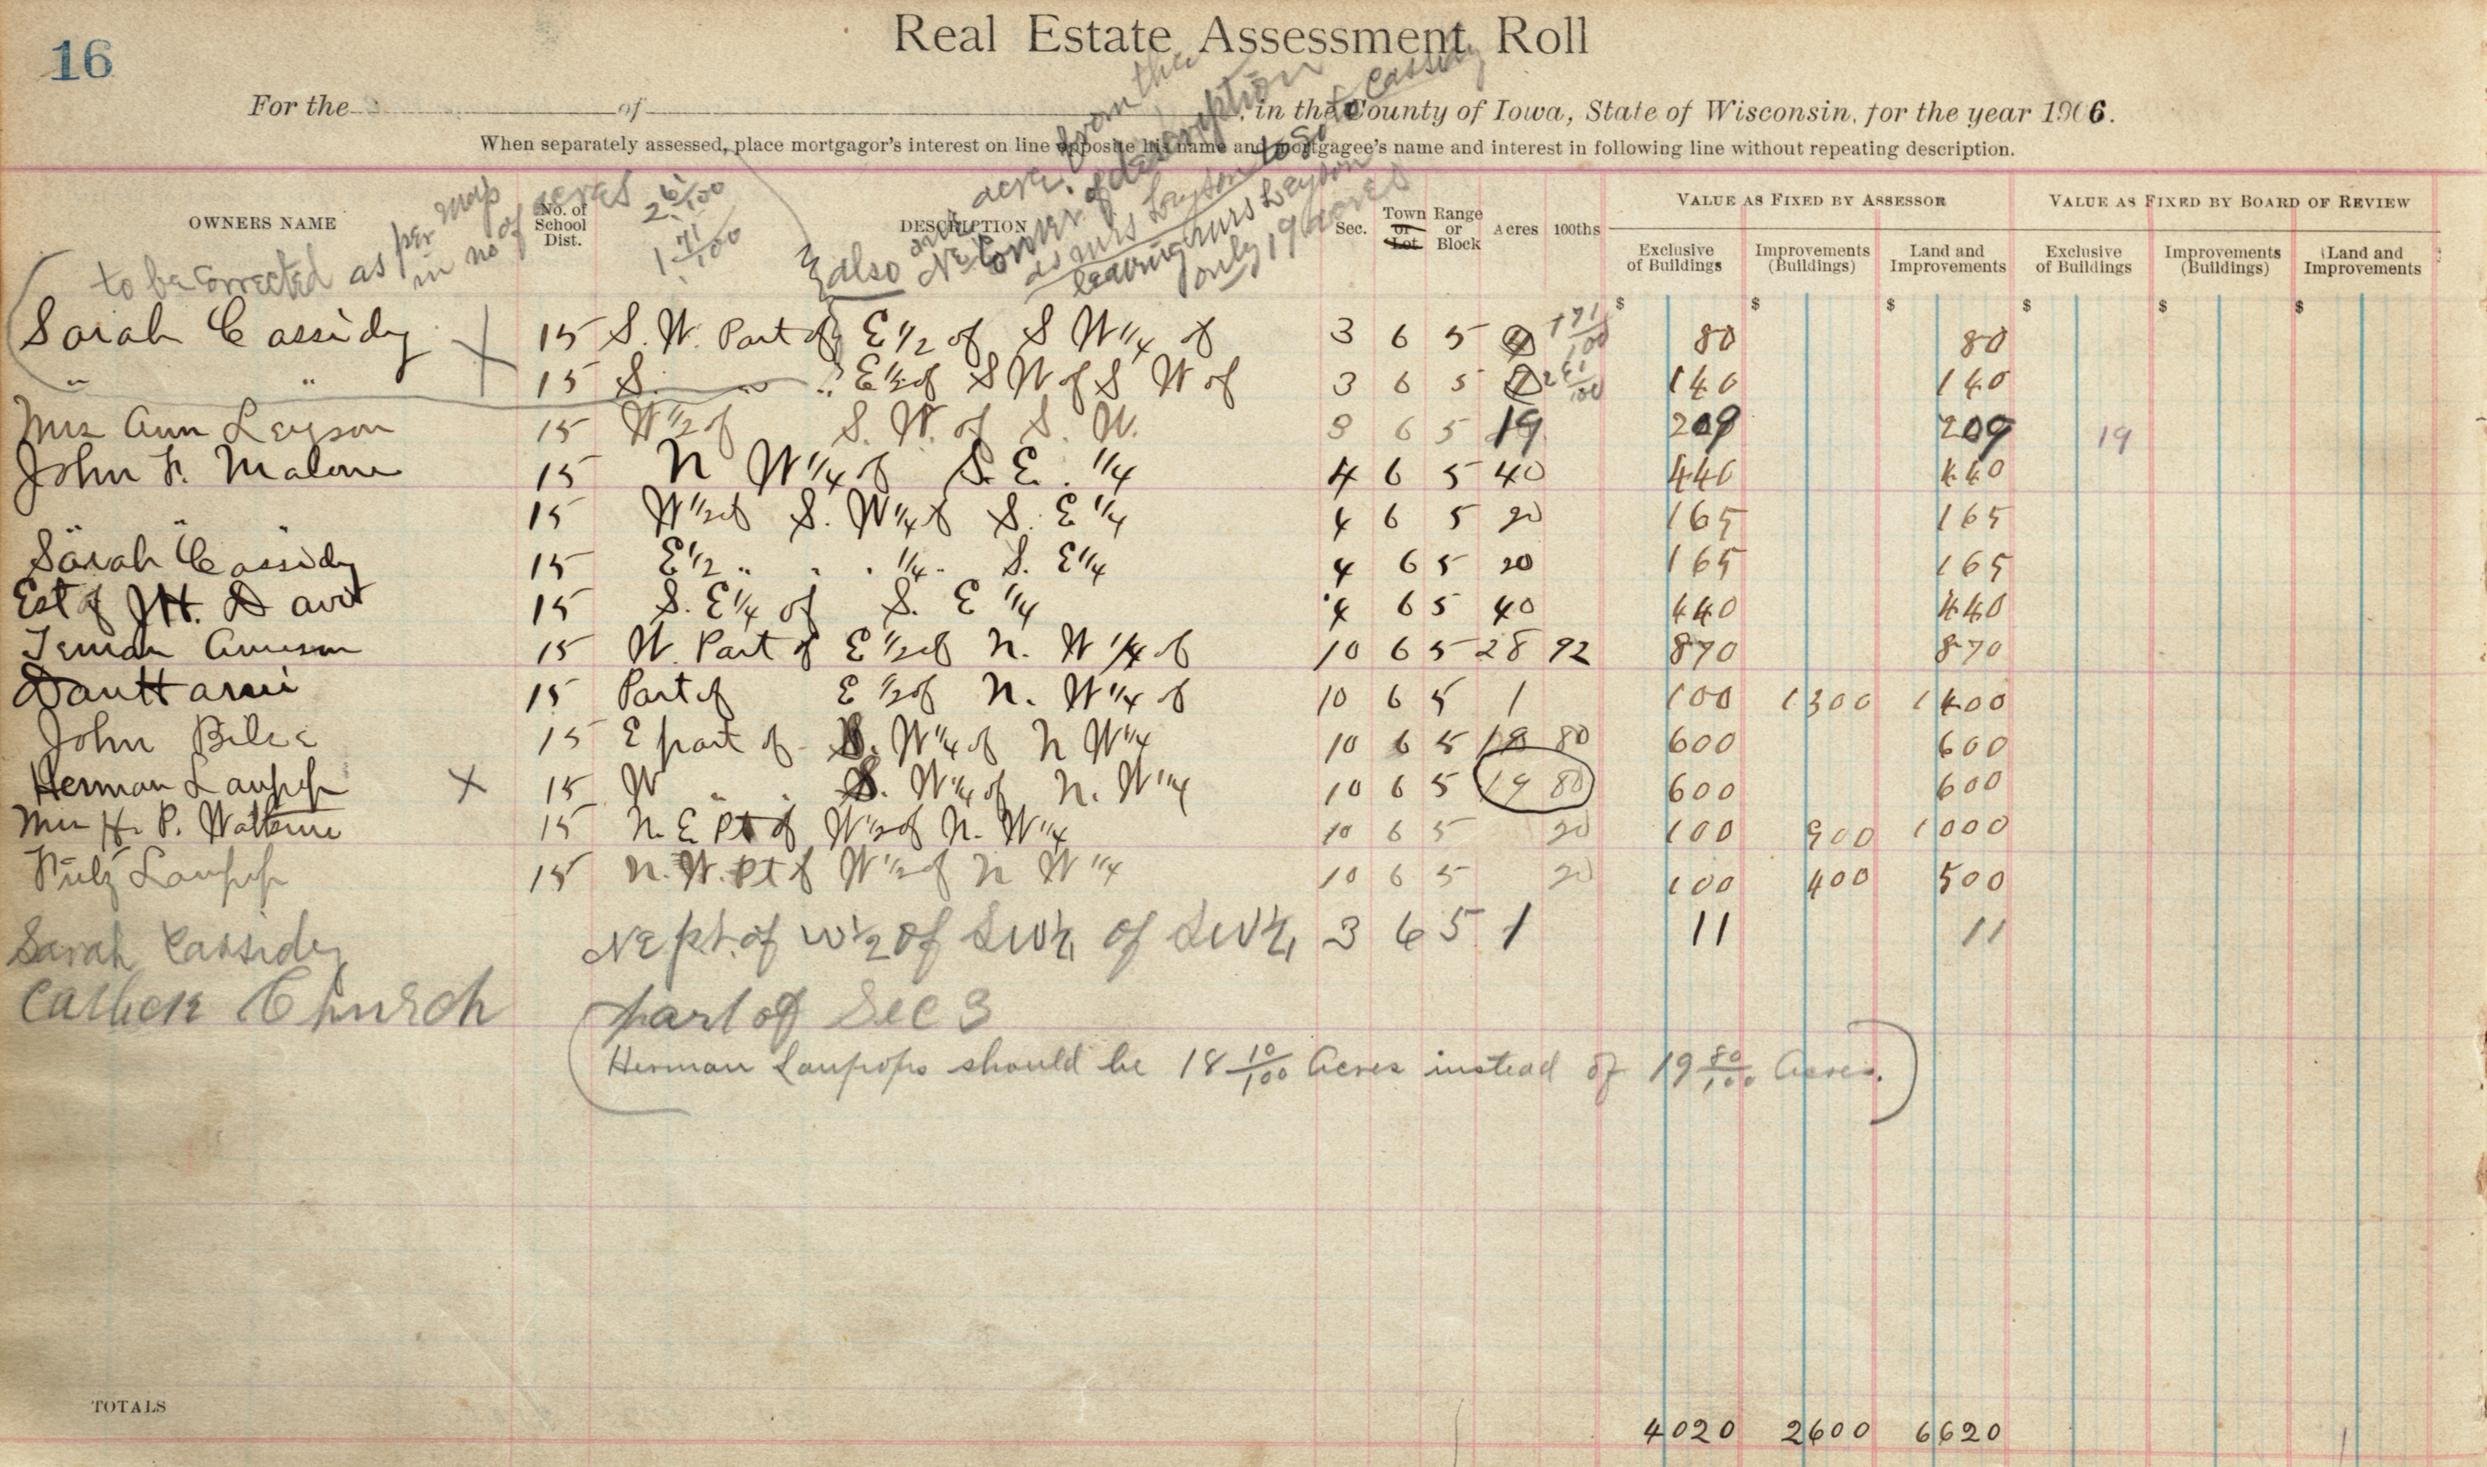 16
Real Estate Assessment Roll
For the of , in the County of Iowa, State of Wisconsin, for the year 1906.
When separately assessed, place mortgagor's interest on line opposite his name and mortgagee's name and interest in following line without repeating description.
OWNERS NAME No. of School Dist. DESCRIPTION Sec. Town or Lot Range or Block Acres 100ths VALUE AS FIXED BY ASSESSOR VALUE AS FIXED BY BOARD OF REVIEW
Exclusive of Buildings Improvements (Buildings) Land and Improvements Exclusive of Buildings Improvements (Buildings) Land and Improvements
$ $ $ $ $ $
to be corrected as per map in no of acres
2 61/100
1 71/100
also one acre from the
NE corner of description
as Mrs Leyson to go to Cassidy
leaving Mrs Leyson
only 19 acres
Sarah Cassidy X 15 S. W. Part of E 1/2 of S W 1/4 of 3 6 5 4 1 71/100 80 80
" " 15 S. " " E 1/2 of S W of S W of 3 6 5 7 2 61/100 140 140
Mrs Ann Leyson 15 W 1/2 of S. W. of S. W. 3 6 5 19 209 209 19
John F. Malone 15 N W 1/4 of S. E. 1/4 4 6 5 40 440 440
" " " 15 W 1/2 of S. W 1/4 of S. E 1/4 4 6 5 20 165 165
Sarah Cassidy 15 E 1/2 " " " 1/4 " S. E 1/4 4 6 5 20 165 165
Est of J.H. 15 S. E 1/4 of S. E 1/4 4 6 5 40 440 440
15 W. Part of E 1/2 of N. W 1/4 of 10 6 5 28 92 870 870
15 Part of E 1/2 of N. W 1/4 of 10 6 5 1 100 1300 1400
John 15 E part of S. W 1/4 of N W 1/4 10 6 5 18 80 600 600
Herman Laupop X 15 W " " S. W 1/4 of N. W 1/4 10 6 5 19 80 600 600
Mrs H. P. 15 N. E Pt of W 1/2 of N. W 1/4 10 6 5 20 100 900 1000
Fritz Laupop 15 N. W. Pt of W 1/2 of N W 1/4 10 6 5 20 100 400 500
Sarah Cassidy NE pt. of W 1/2 of SW 1/4 of SW 1/4 3 6 5 1 11 11
Catholic Church part of Sec 3
Herman Laupops should be 18 10/100 Acres instead of 19 80/100 Acres.
TOTALS 4020 2600 6620